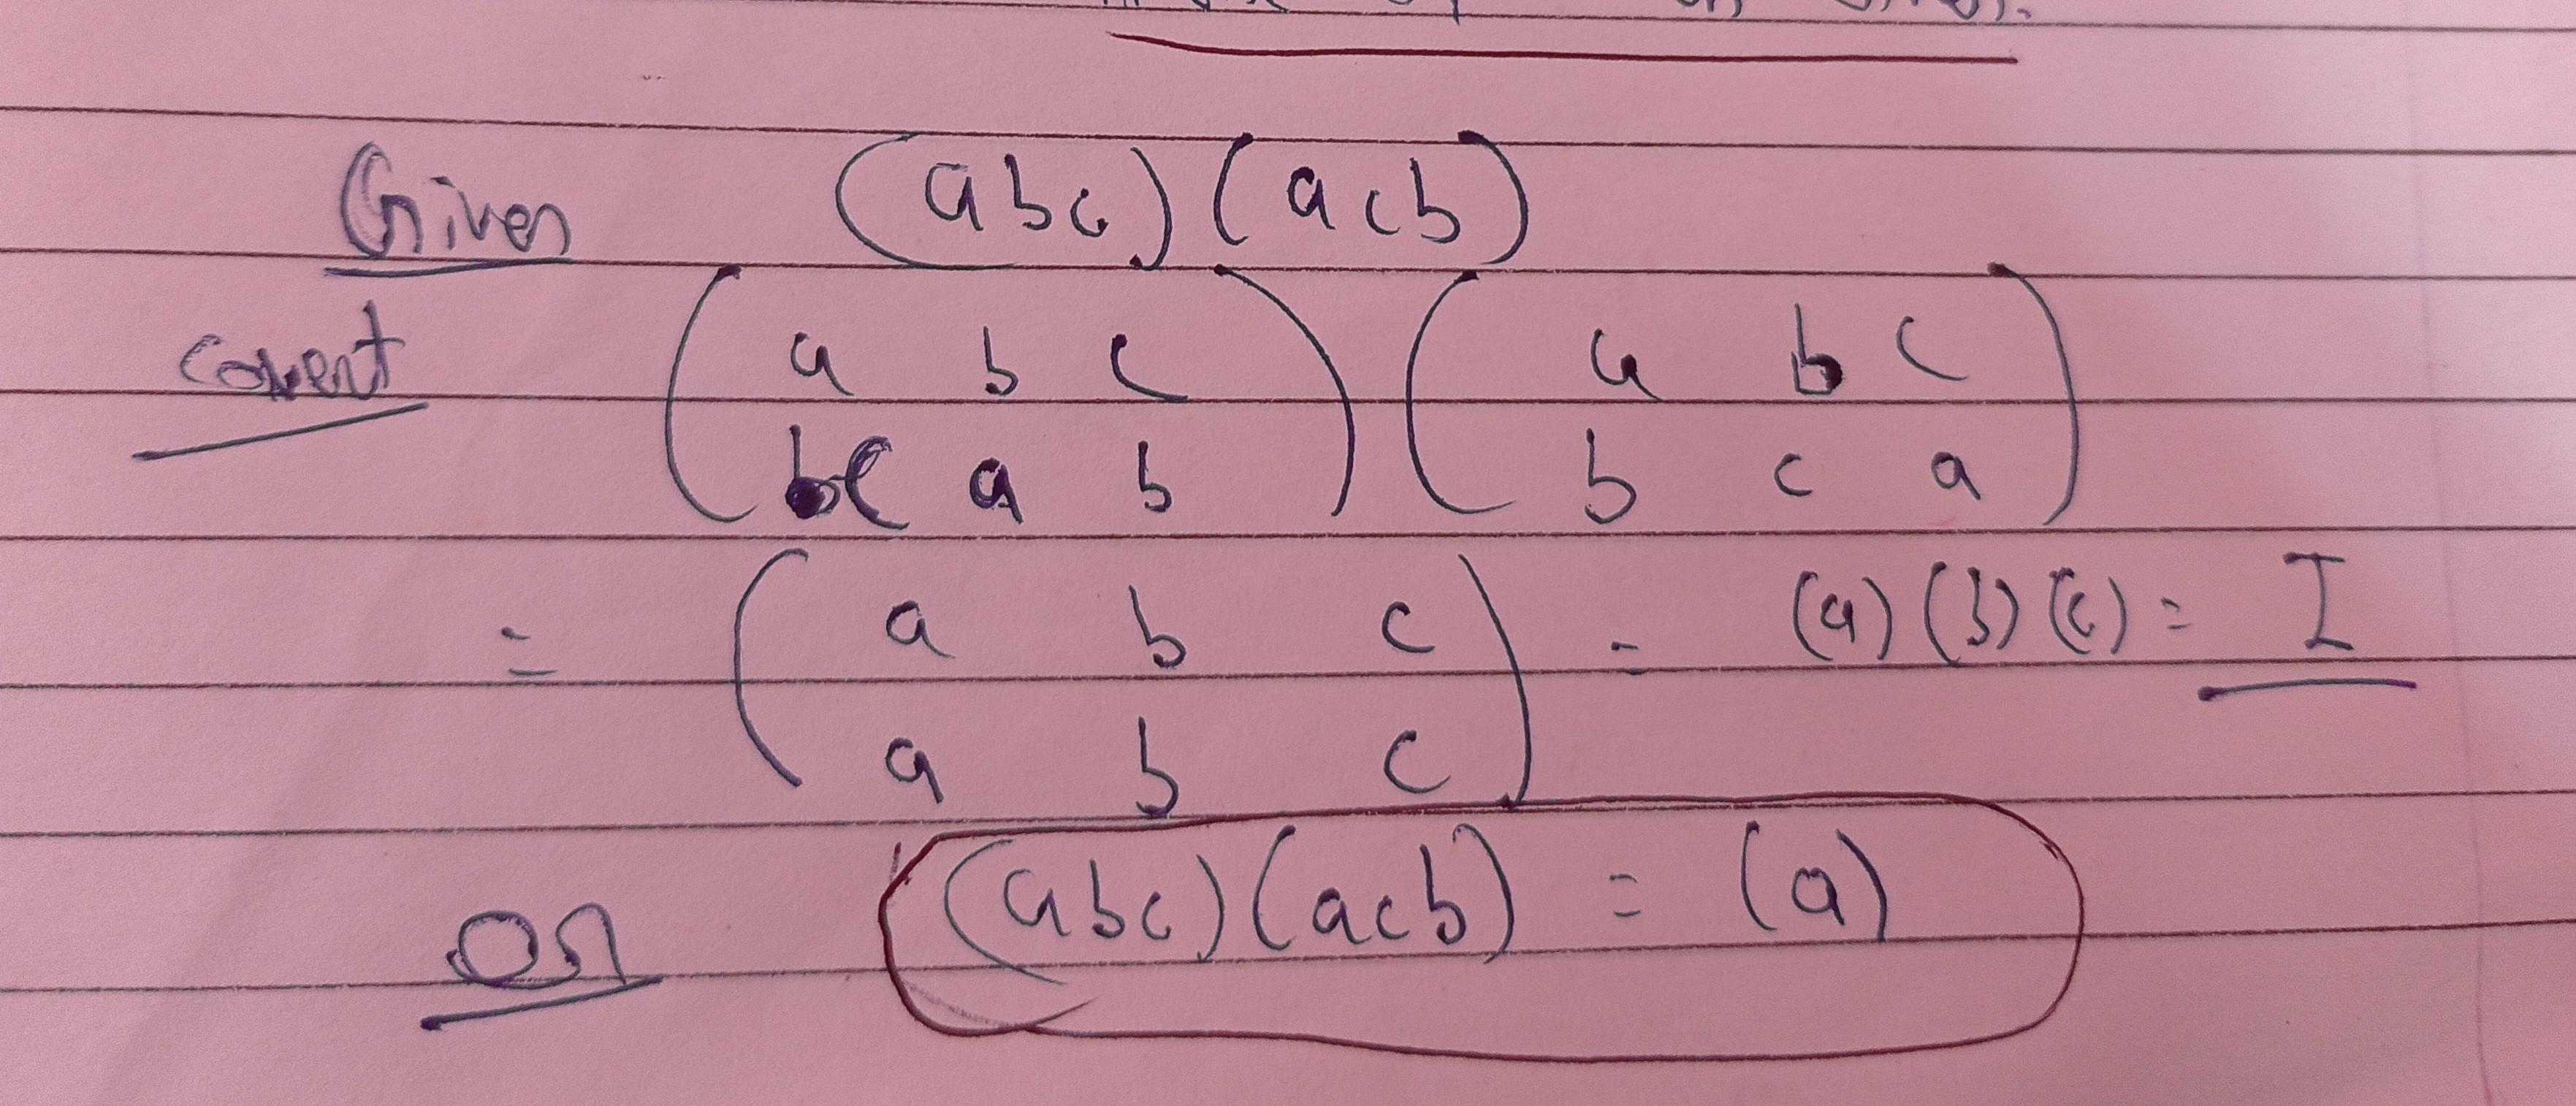 Given (abc)(acb)
convert ( a b c ) ( a b c )
( c a b ) ( b c a )
= ( a b c ) = (a)(b)(c) = I
( a b c )
or (abc)(acb) = (a)